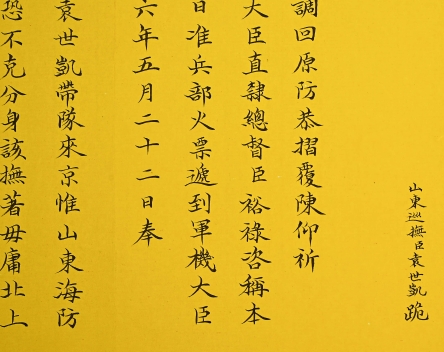 山東巡撫臣袁世凱跪
調回原防恭摺覆陳仰祈
大臣直隸總督臣裕祿咨稱本
日准兵部火票遞到軍機大臣
六年五月二十二日奉
袁世凱帶隊來京惟山東海防
恐不克分身該撫著毋庸北上